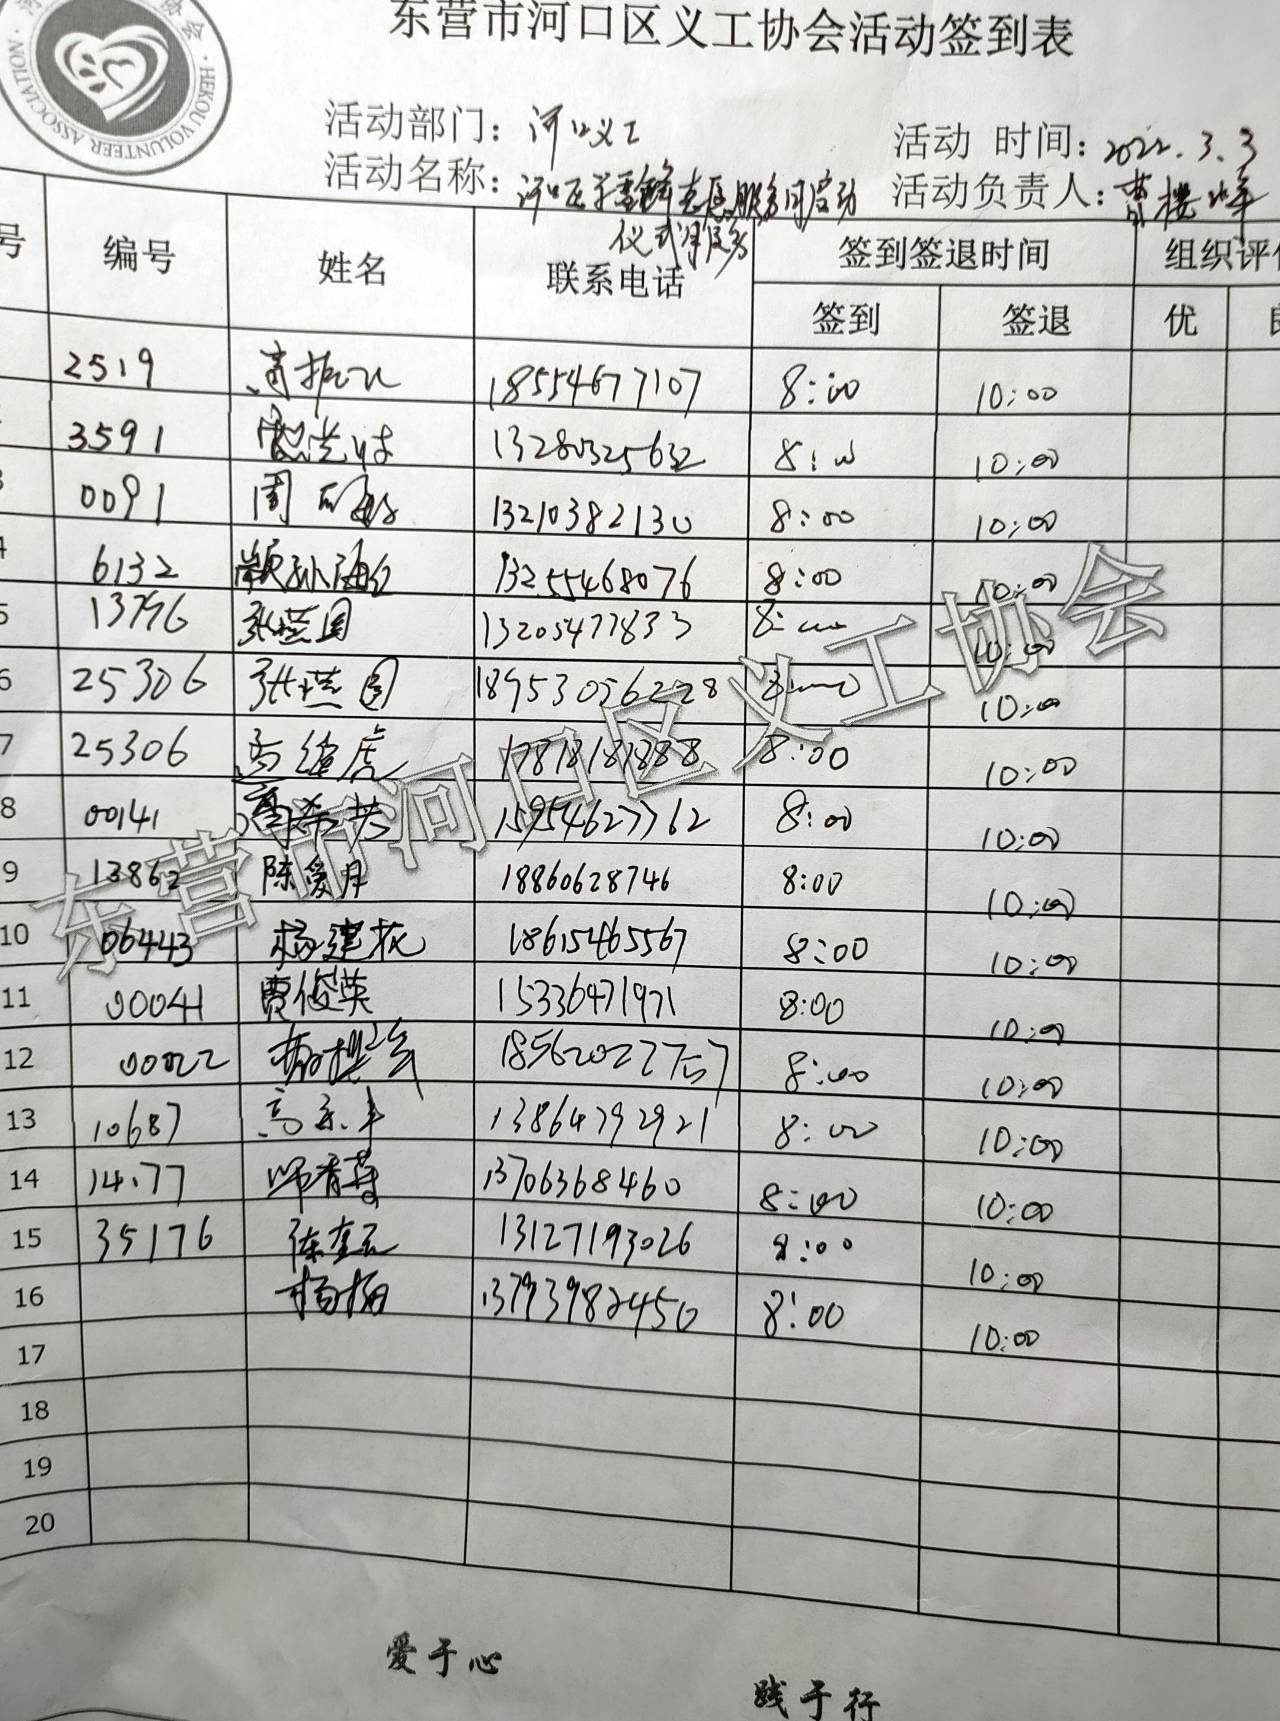 东营市河口区义工协会活动签到表
HEKOU VOLUNTEER ASSOCIATION
活动部门: 河口义工 活动 时间: 2022.3.3
活动名称: 河口区学雷锋志愿服务月启动 活动负责人:
仪式
号 编号 姓名 联系电话 签到签退时间 组织评价
签到 签退 优 良
2519 18554677107 8:00 10:00
3591 13280325632 8:00 10:00
3 0091 周 13210382130 8:00 10:00
4 6132 颛孙海 13255468076 8:00 10:00
5 13796 张燕国 13205477833 8:00 10:00
6 25306 张燕国 18953056228 8:00 10:00
7 25306 高 虎 17818181888 8:00 10:00
8 00141 15954627762 8:00 10:00
9 13862 陈爱月 18860628746 8:00 10:00
10 06443 杨建花 18615465567 8:00 10:00
11 00041 贾俊英 15336471971 8:00 10:00
12 00022 18562027757 8:00 10:00
13 10687 高 13864792921 8:00 10:00
14 14177 13706368460 8:00 10:00
15 35176 徐奎云 13127193026 8:00 10:00
16 杨梅 13793982450 8:00 10:00
17
18
19
20
东营市河口区义工协会
爱于心 践于行